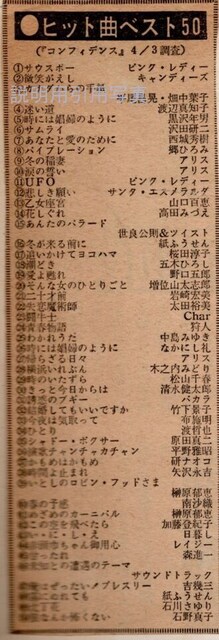 ●ヒット曲ベスト50
(『コンフィデンス』4/3調査)
①サウスポー ピンク・レディー
②微笑がえし キャンディーズ
説明用引用写真
平尾昌晃・畑中葉子
④迷い道 渡辺真知子
⑤時には娼婦のように 黒沢年男
⑥サムライ 沢田研二
⑦あなたと愛のために 西城秀樹
⑧バイブレーション 郷ひろみ
⑨冬の稲妻 アリス
⑩涙の誓い アリス
⑪UFO ピンク・レディー
⑫悲しき願い サンタ・エスメラルダ
⑬乙女座宮 山口百恵
⑭花しぐれ 高田みづえ
⑮あんたのバラード
世良公則&ツイスト
⑯冬が来る前に 紙ふうせん
⑰追いかけてヨコハマ 桜田淳子
潮どき 五木ひろし
愛よ甦れ 野口五郎
そんな女のひとりごと 増位山太志郎
二十才前 岩崎宏美
失恋魔術師 太田裕美
闘牛士 Char
青春物語 狩人
わかれうた 中島みゆき
時には娼婦のように なかにし礼
帰らざる日々 アリス
横浜いれぶん 木之内みどり
時のいたずら 松山千春
きっと今日からは 清水健太郎
誘惑のブギー バカラ
結婚してもいいですか 竹下景子
布施明
夜は 渡哲也
シャドー・ボクサー 原田真二
演歌チャンチャカチャン 平野雅昭
かもめはかもめ 研ナオコ
時間よ止まれ 矢沢永吉
いとしのロビン・フッドさま
榊原郁恵
春の予感 南沙織
めざめのカーニバル 榊原郁恵
この空を飛べたら 加藤登紀子
い・に・し・え 日暮し
赤頭巾ちゃん御用心 レイジー
森進一
未知との遭遇のテーマ
サウンドトラック
ノブレスリー 吉幾三
紙ふうせん
石川さゆり
なんか怖くない 石野真子